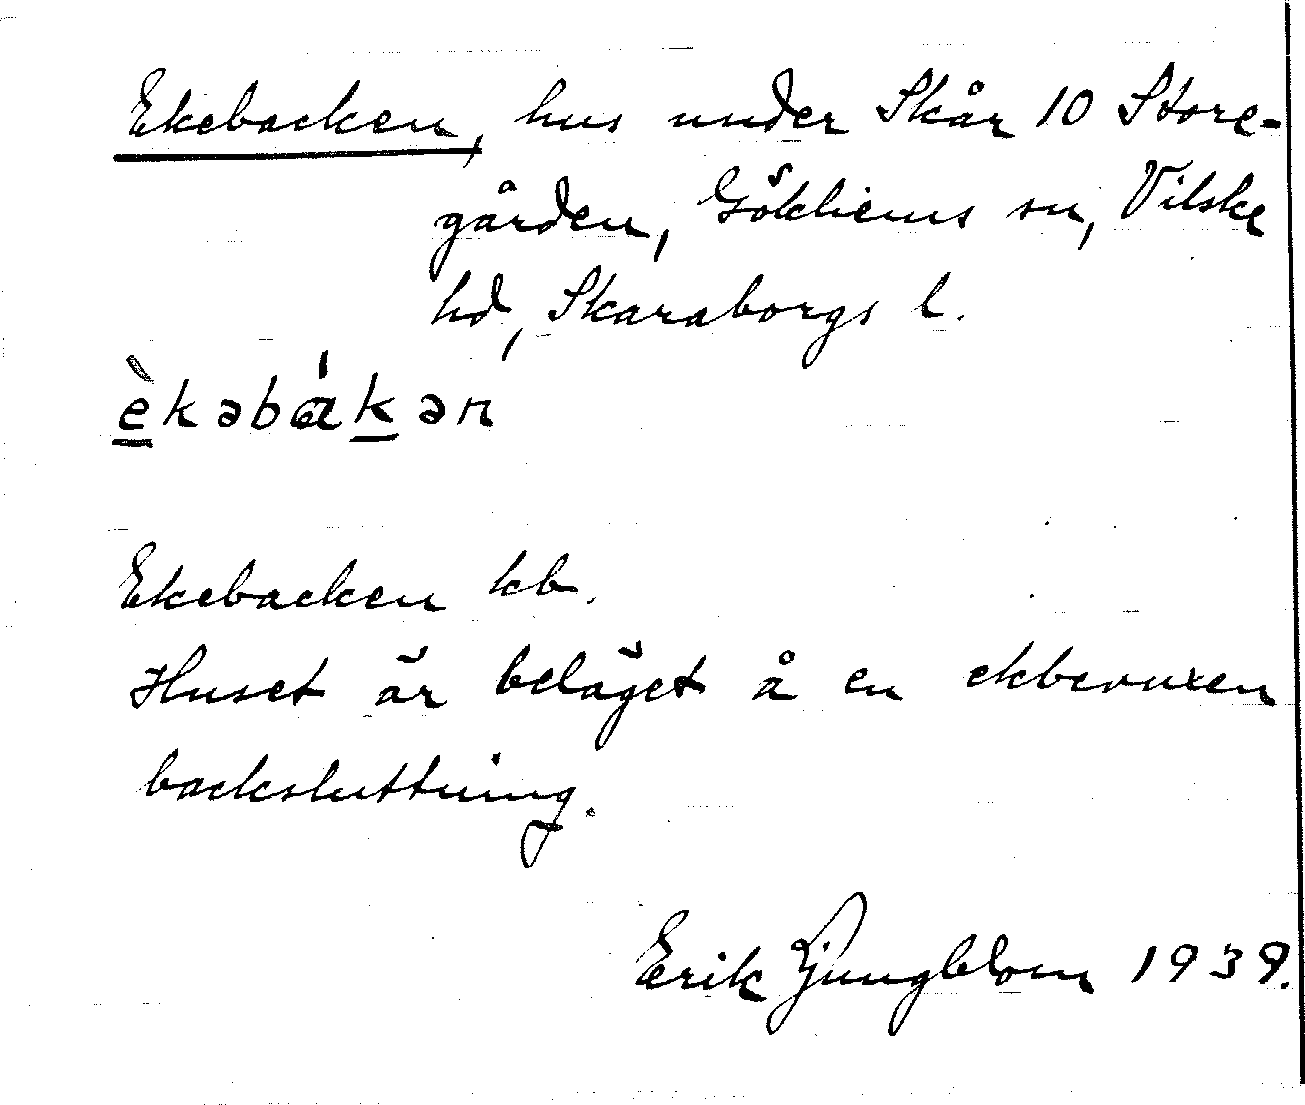 Ekebacken, hus under Skår 10 Store-
gården, Gökhems sn, Vilske
hd, Skaraborgs l.
èkəbákən
Ekebacken kb.
Huset är beläget å en ekbevuxen
backsluttning.
Erik Ljungblom 1939.